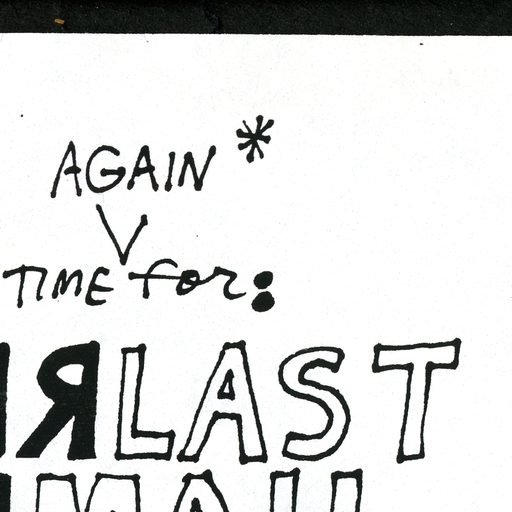 AGAIN *
TIME for:
ЯLAST